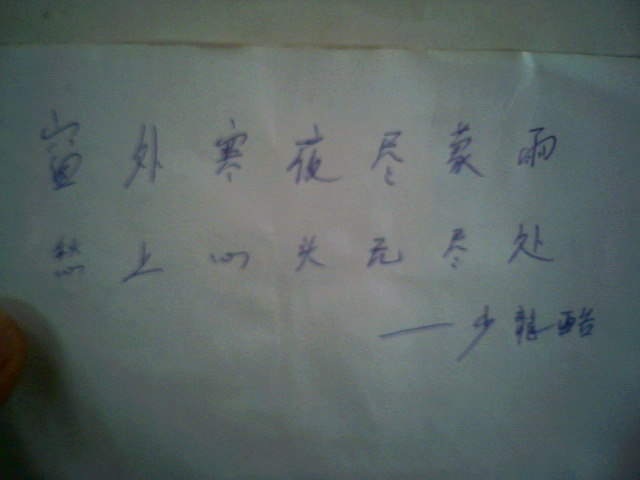 窗外寒夜尽蒙雨
愁上心头无尽处
——少龍酷